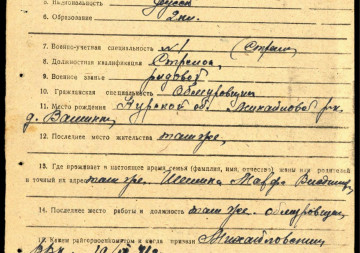 5. Национальность русск
6. Образование 2 кл.
7. Военно-учетная специальность №1 (Стрелк)
8. Должностная квалификация Стрелок
9. Военное звание рядовой
10. Гражданская специальность
11. Место рождения Курской об. Михайловой р-н
д.
12. Последнее место жительства там же
13. Где проживает в настоящее время семья (фамилия, имя, отчество) жены или родителей
и точный их адрес там же.
14. Последнее место работы и должность там же.
15. Каким райгорвоенкоматом и когда призван Михайловским